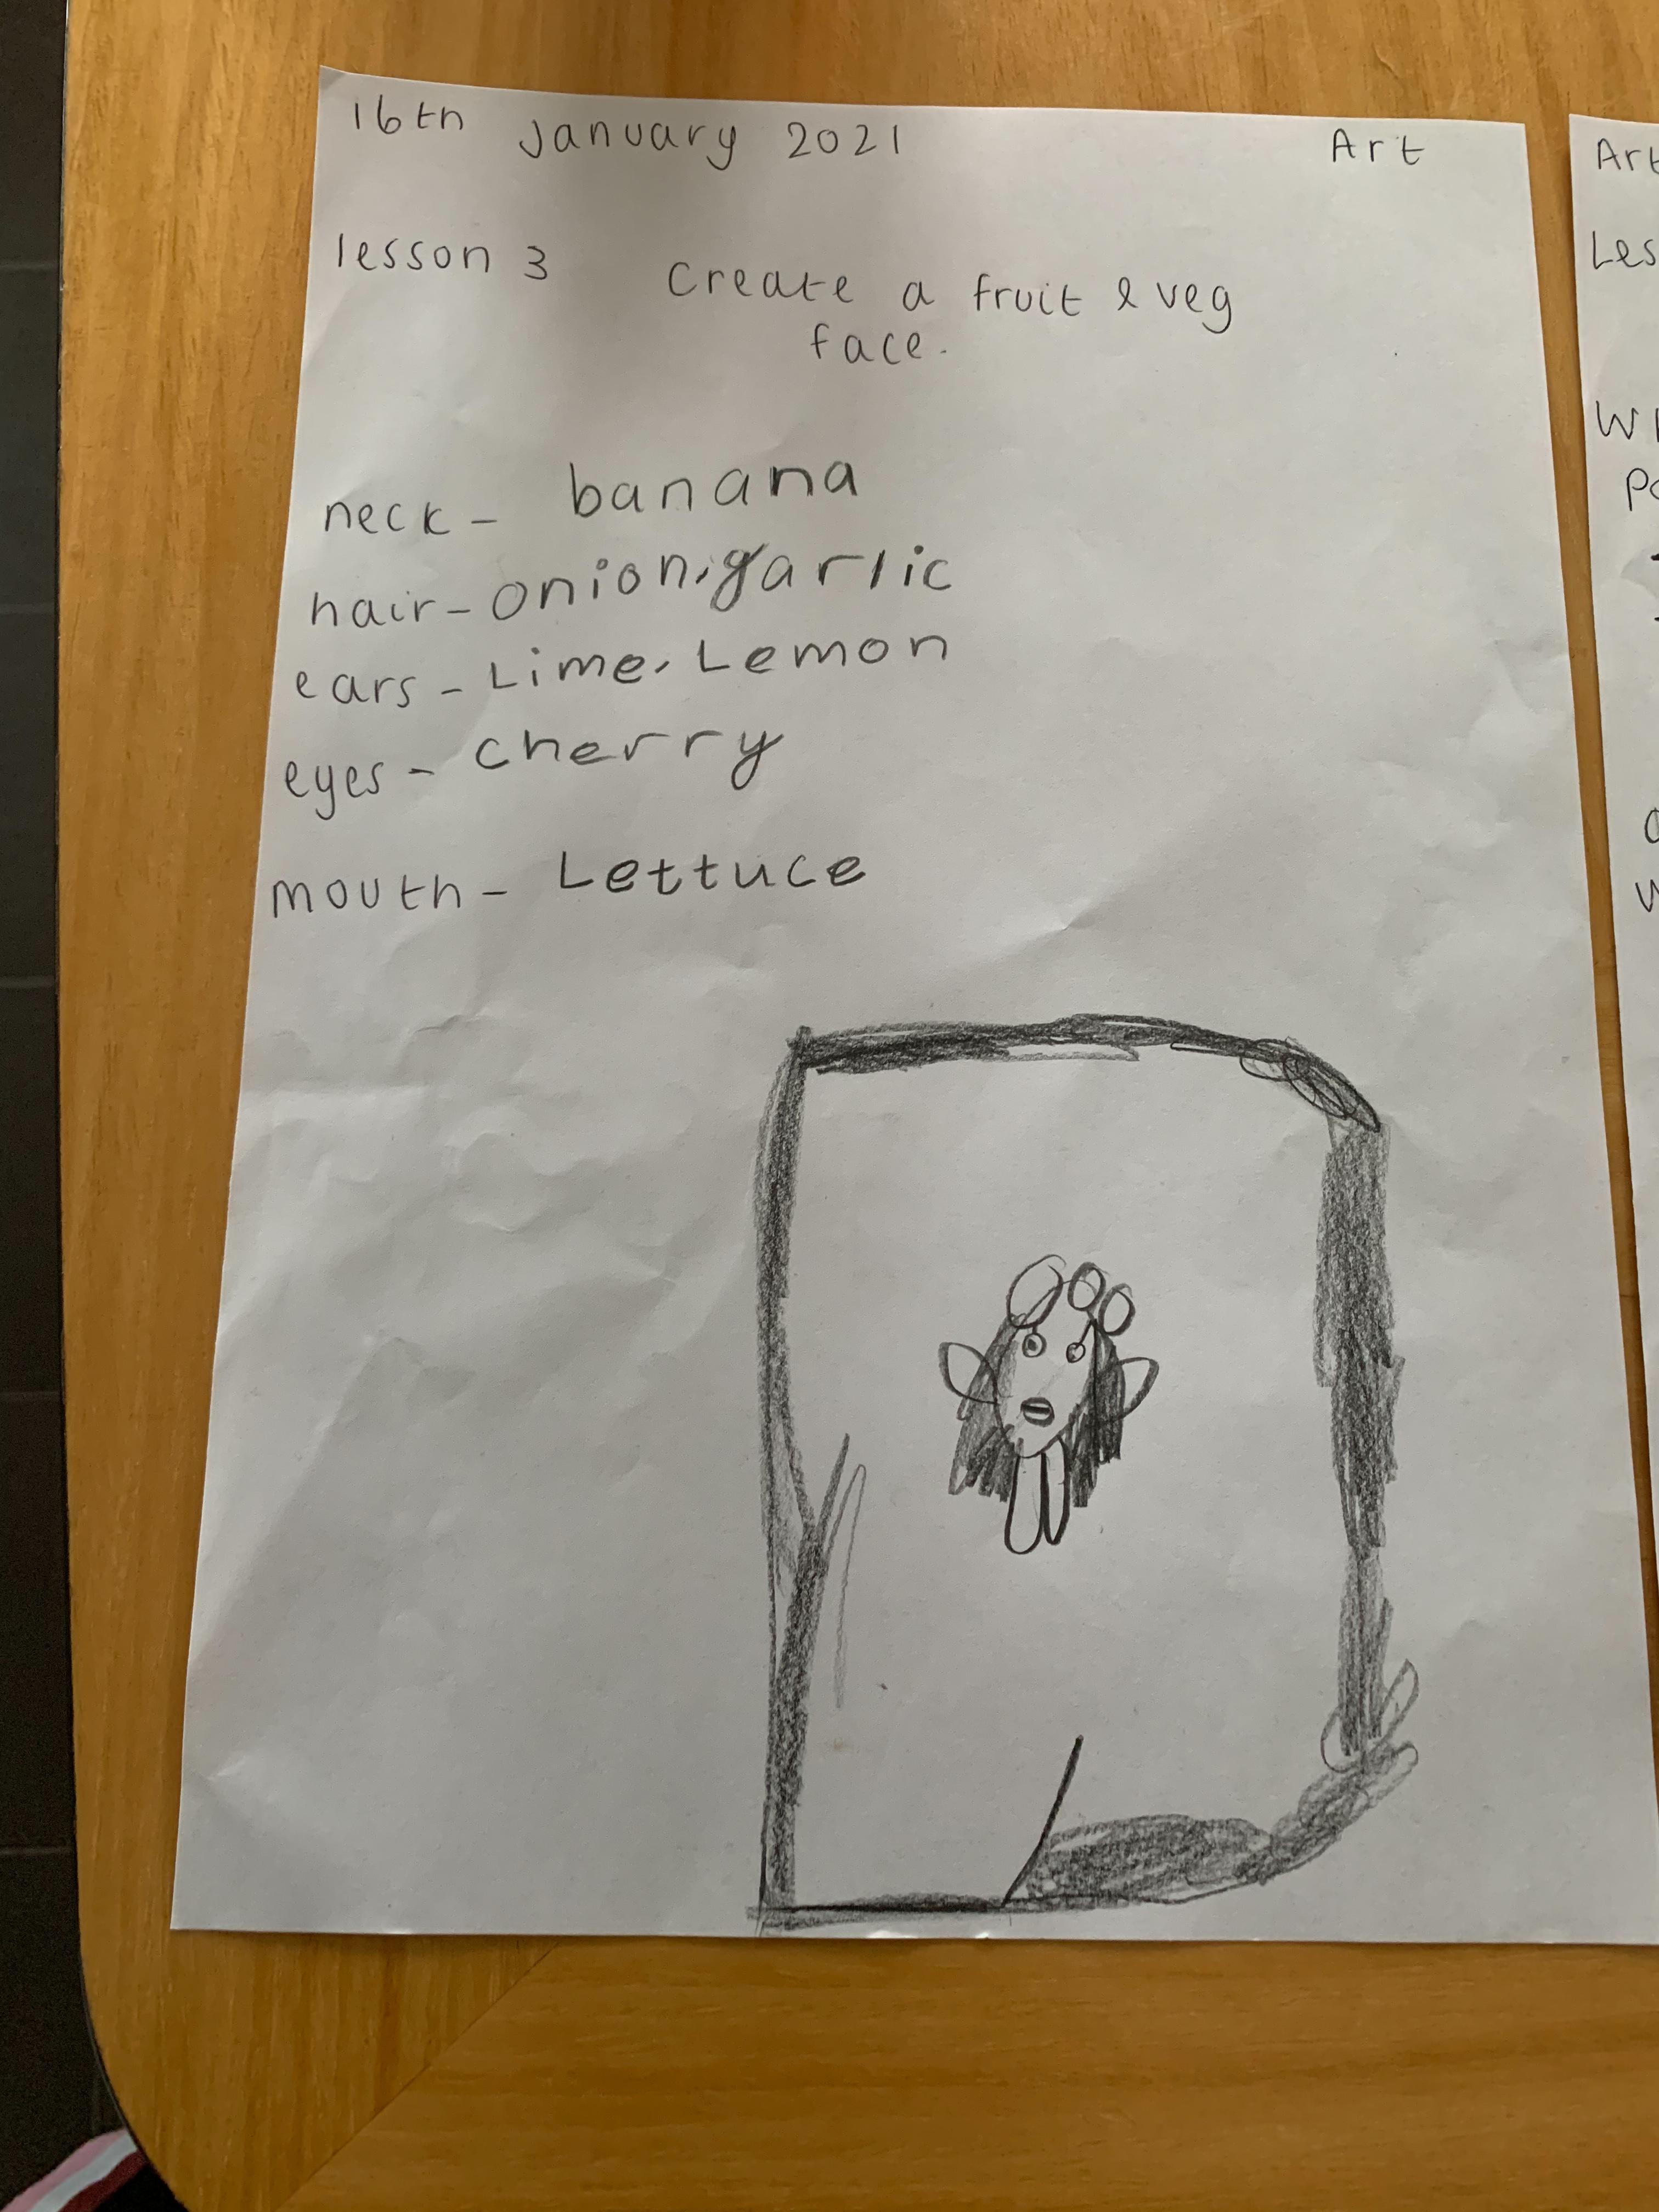 16th January 2021 Art
lesson 3 Create a fruit & veg
face.
neck - banana
hair - onion, garlic
ears - Lime, Lemon
eyes - cherry
mouth - Lettuce
Art